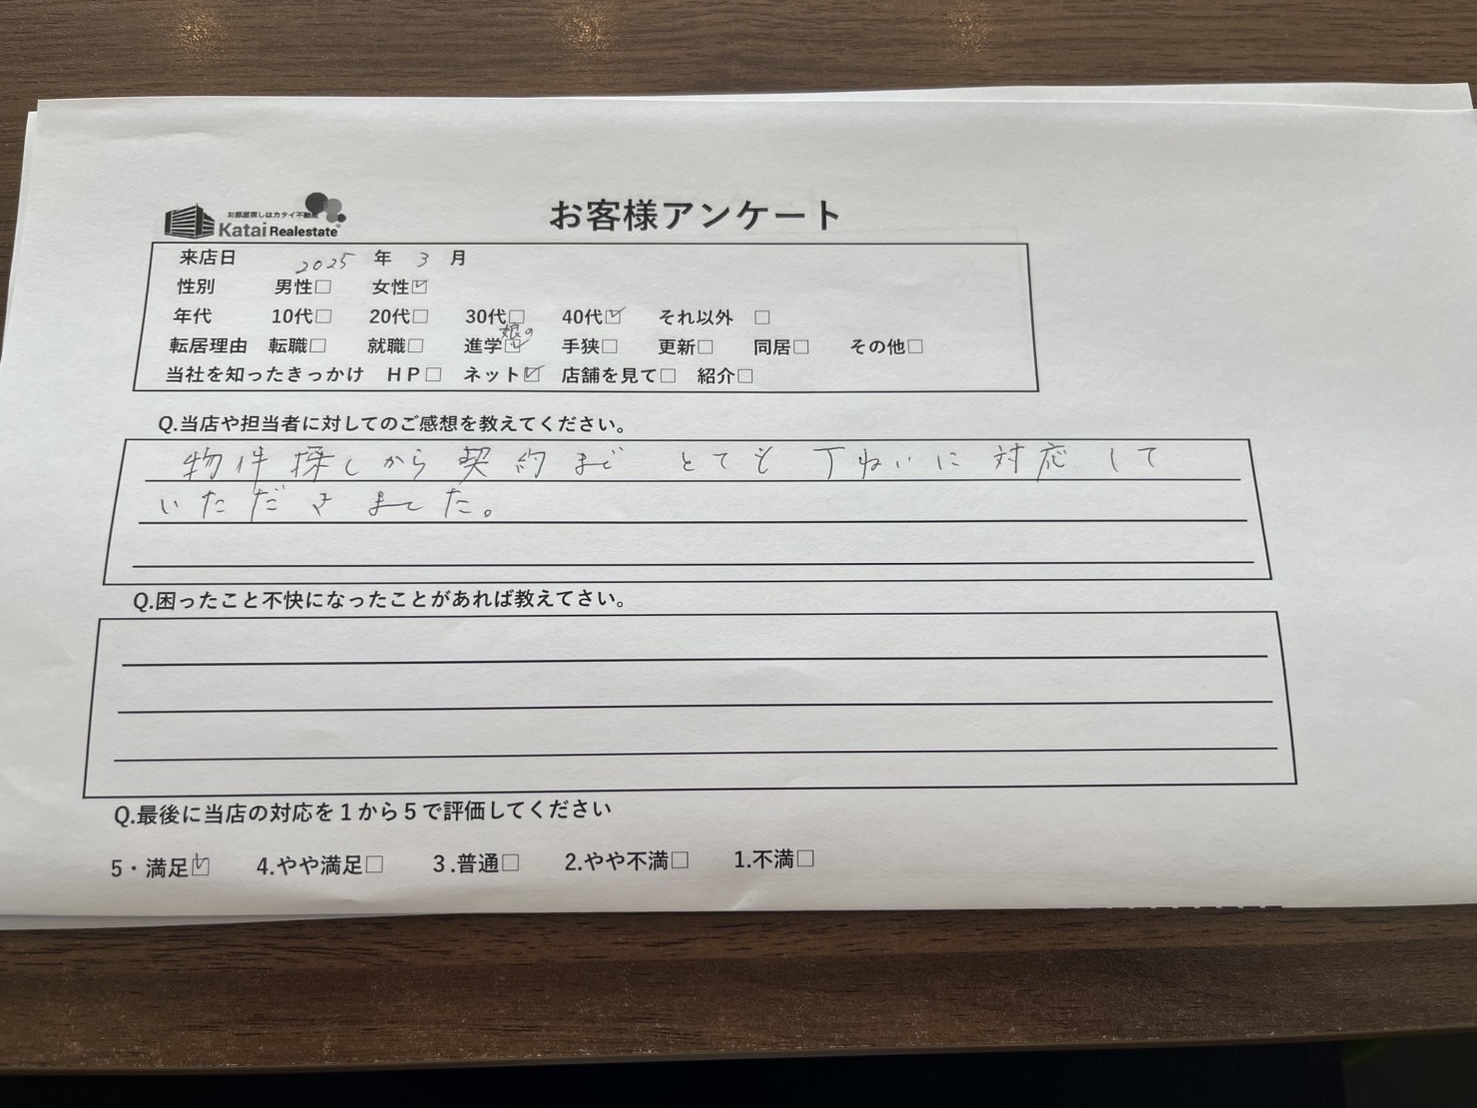 お部屋探しはカタイ不動産
Katai Realestate
お客様アンケート
来店日 2025 年 3 月
性別 男性□ 女性☑
年代 10代□ 20代□ 30代□ 40代☑ それ以外 □
娘の
転居理由 転職□ 就職□ 進学☑ 手狭□ 更新□ 同居□ その他□
当社を知ったきっかけ HP□ ネット☑ 店舗を見て□ 紹介□
Q.当店や担当者に対してのご感想を教えてください。
物件探しから契約まで とても 丁ねいに 対応して
いただきました。
Q.困ったこと不快になったことがあれば教えてさい。
Q.最後に当店の対応を1から5で評価してください
5・満足☑ 4.やや満足□ 3.普通□ 2.やや不満□ 1.不満□